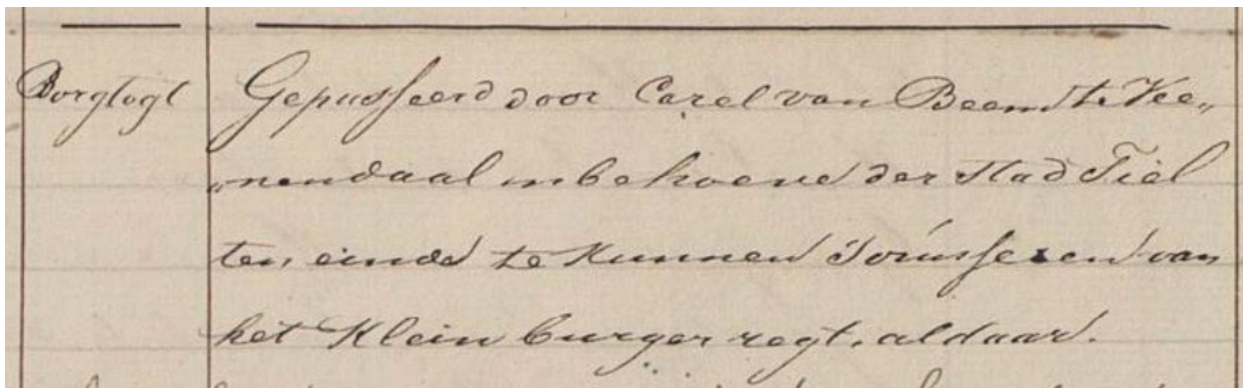 Borgtogt Gepasseerd door Carel van Beem te Vee„
„nendaal in behoeve der Stad Tiel
ten einde te kunnen Jouisseren van
het Klein burger regt, aldaar.